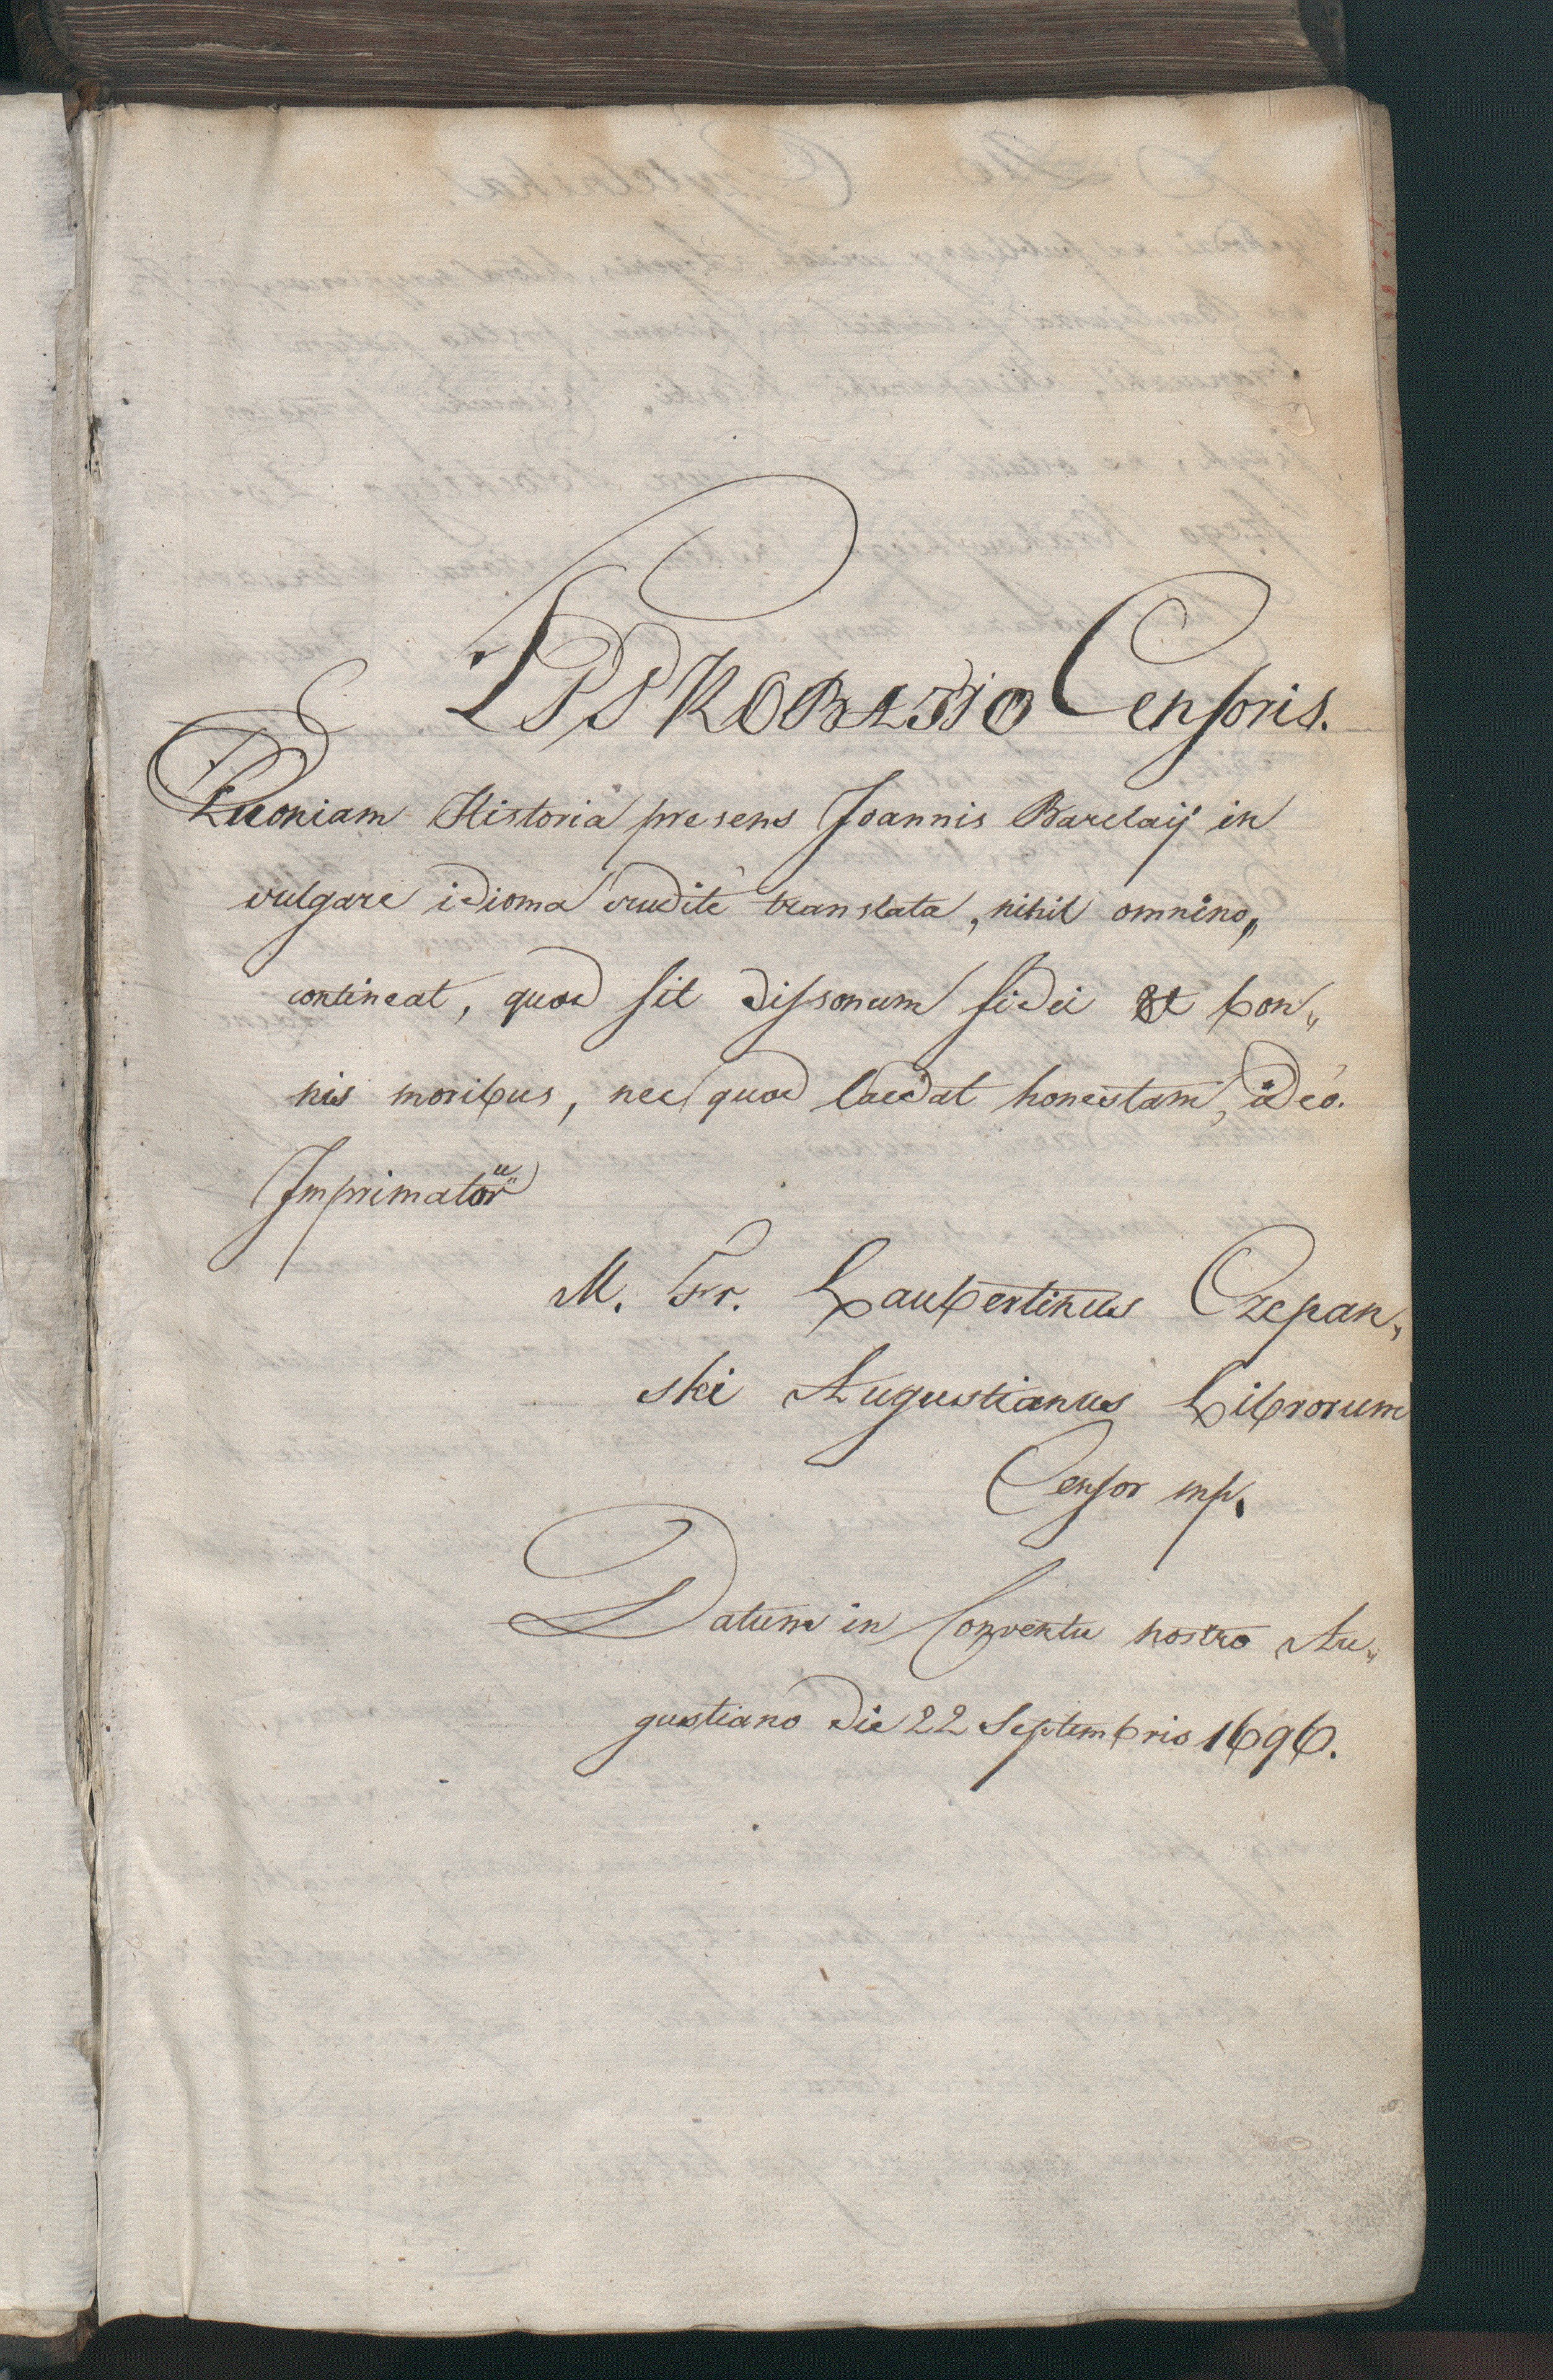 APPROBATIO Censoris.
Quoniam Historia presens Joannis Barclaij in
vulgare idioma erudite translata, nihil omnino„
contineat, quod sit dissonum fidei et bon„
nis moribus, nec quod laedat honestam, ideo.
Imprimatur
M. Fr. Laubertinus Czepan„
ski Augustianus Librorum
Censor mp.
Datum in Conventu nostro Au„
gustiano Die 22 Septembris 1696.